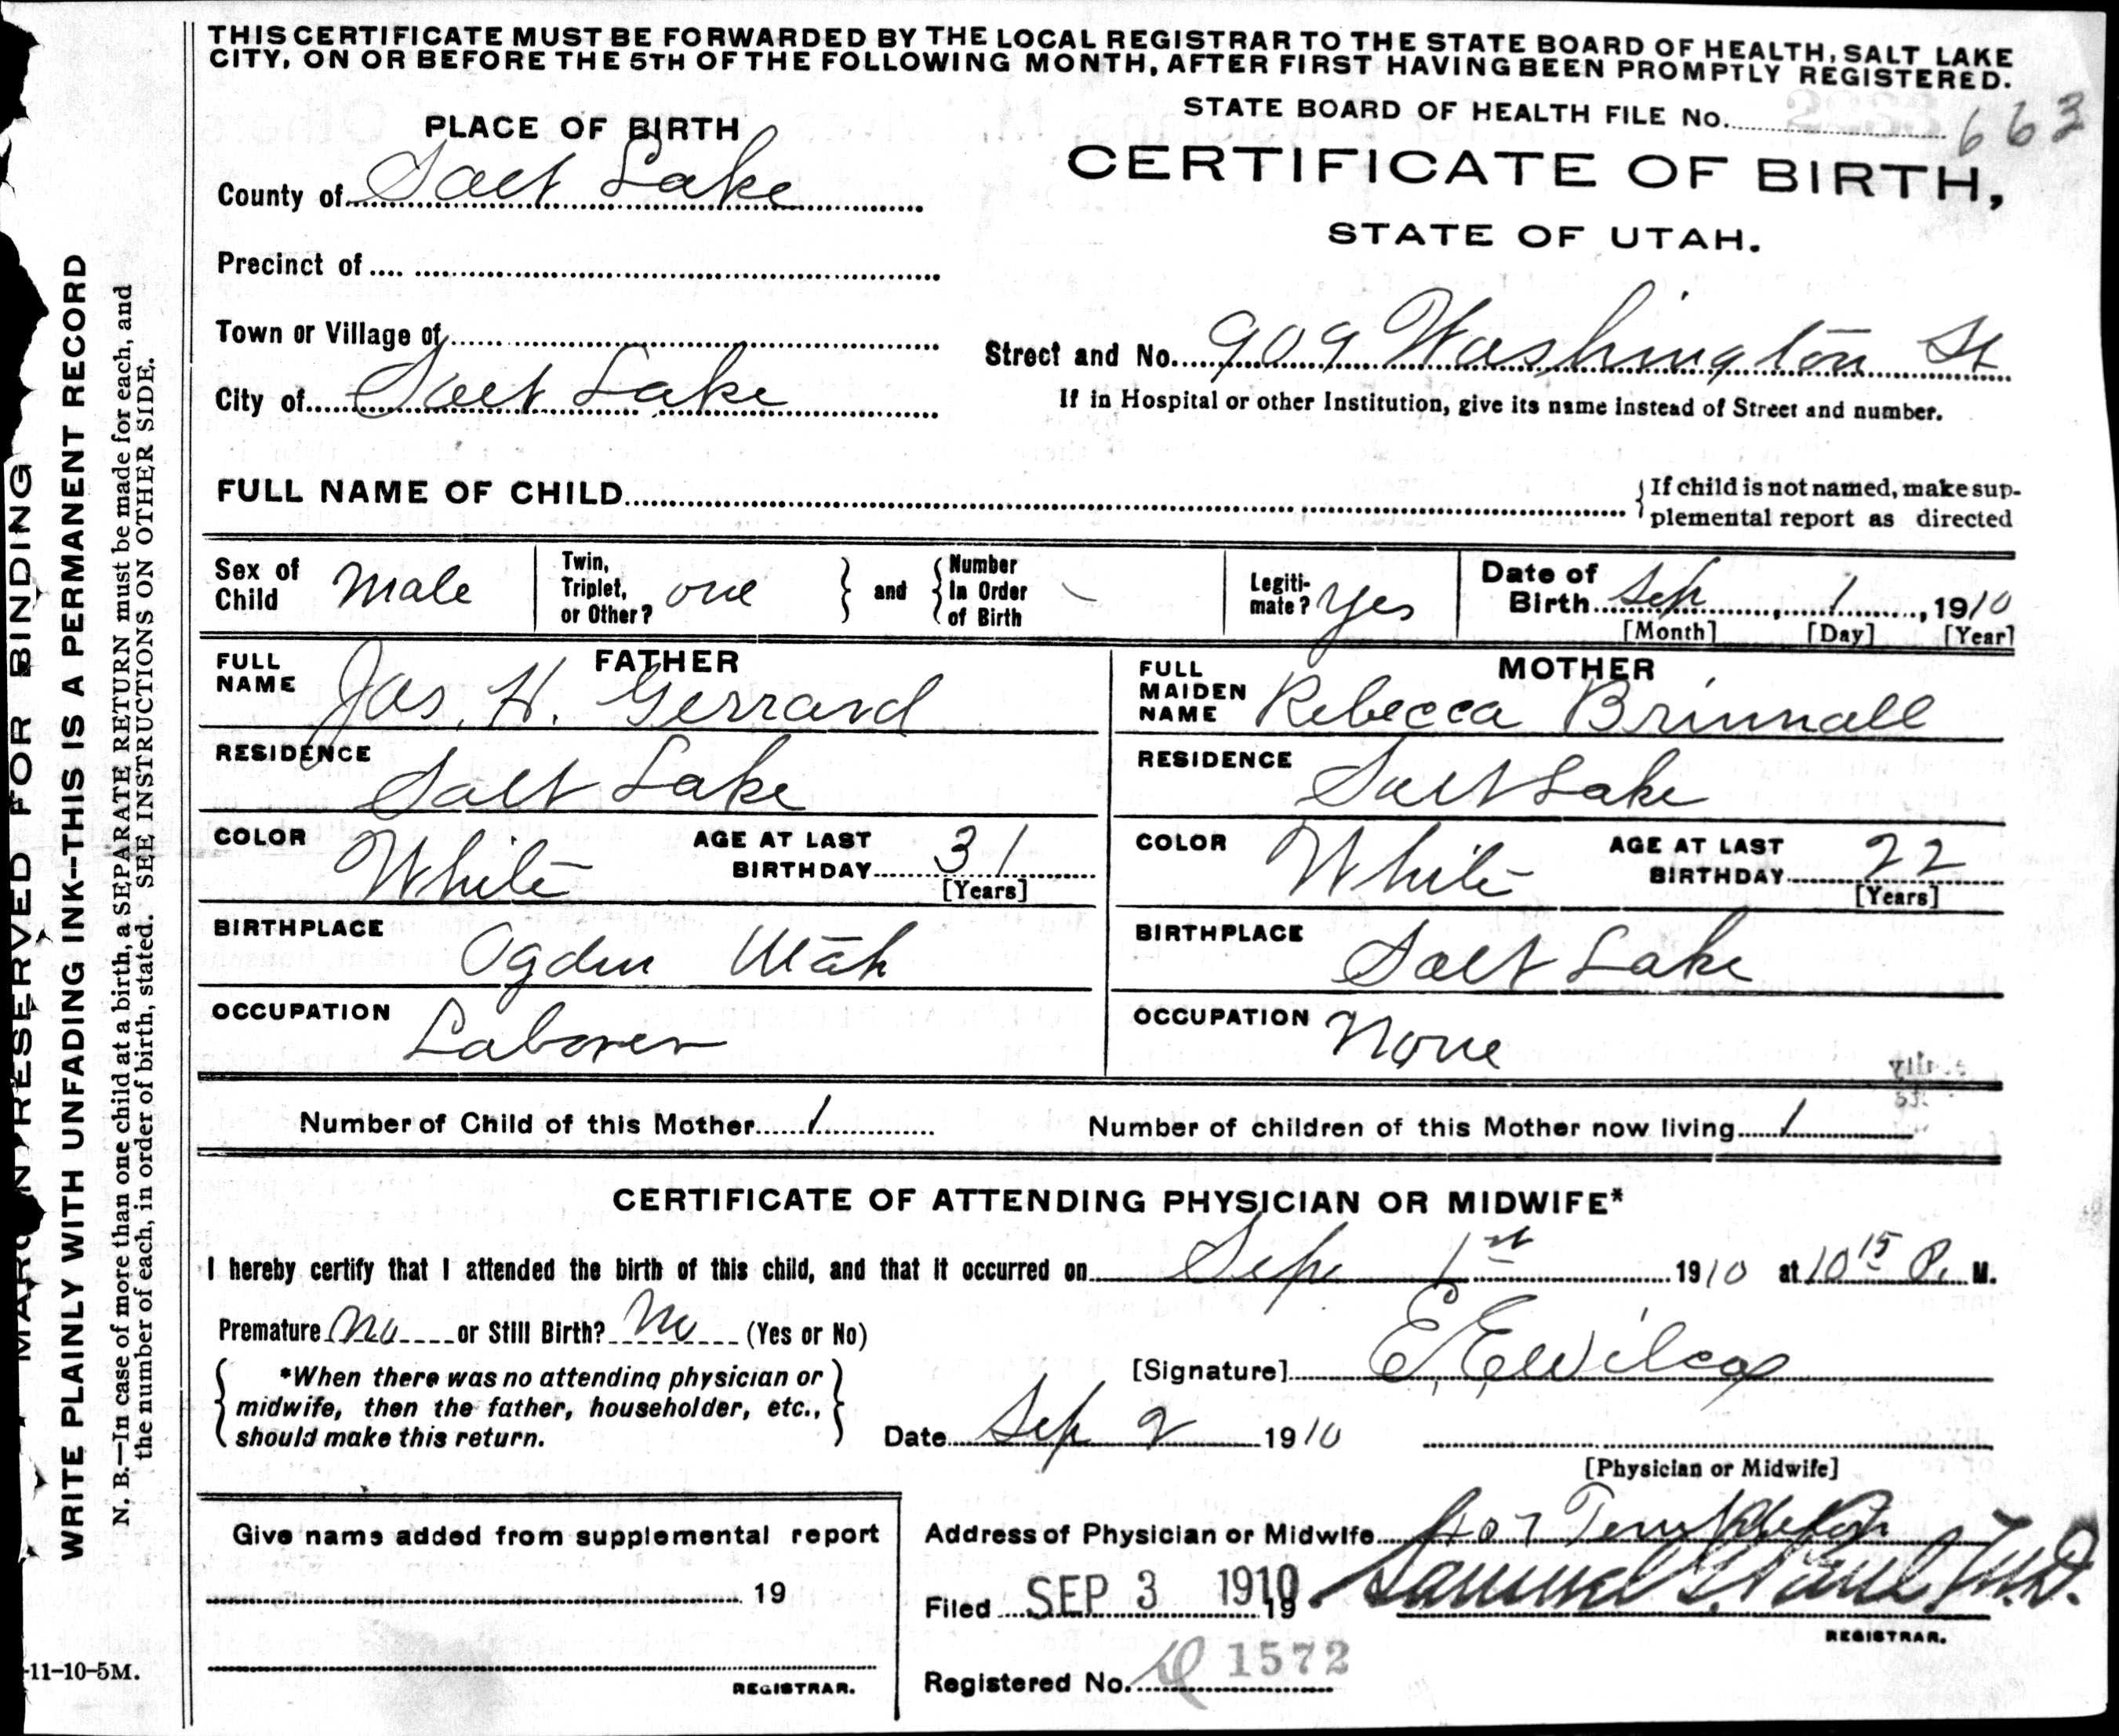 THIS CERTIFICATE MUST BE FORWARDED BY THE LOCAL REGISTRAR TO THE STATE BOARD OF HEALTH, SALT LAKE
CITY, ON OR BEFORE THE 5TH OF THE FOLLOWING MONTH, AFTER FIRST HAVING BEEN PROMPTLY REGISTERED.
STATE BOARD OF HEALTH FILE No. 663
PLACE OF BIRTH
CERTIFICATE OF BIRTH,
STATE OF UTAH.
County of Salt Lake
Precinct of
Town or Village of
Street and No. 909 Washington St
City of Salt Lake
If in Hospital or other Institution, give its name instead of Street and number.
FULL NAME OF CHILD
If child is not named, make sup-
plemental report as directed
Sex of Child Male
Twin, Triplet, or Other? one
and Number In Order of Birth -
Legiti-mate? Yes
Date of Birth Sep, 1, 1910
[Month] [Day] [Year]
FATHER
FULL NAME Jas. H. Gerrard
RESIDENCE Salt Lake
COLOR White AGE AT LAST BIRTHDAY 31
[Years]
BIRTHPLACE Ogden Utah
OCCUPATION Laborer
MOTHER
FULL MAIDEN NAME Rebecca Brimnall
RESIDENCE Salt Lake
COLOR White AGE AT LAST BIRTHDAY 22
[Years]
BIRTHPLACE Salt Lake
OCCUPATION None
Number of Child of this Mother 1
Number of children of this Mother now living 1
CERTIFICATE OF ATTENDING PHYSICIAN OR MIDWIFE*
I hereby certify that I attended the birth of this child, and that it occurred on Sep 1st 1910 at 10 15 P. M.
Premature No or Still Birth? No (Yes or No)
*When there was no attending physician or
midwife, then the father, householder, etc.,
should make this return.
[Signature] E. E. Wilcox
Date Sep 2 1910
[Physician or Midwife]
Give name added from supplemental report
19
REGISTRAR.
Address of Physician or Midwife 407 Templeton
Filed SEP 3 1910 19
Samuel G. Paul, M.D.
REGISTRAR.
Registered No. 1572
11-10-5M.
MARGIN RESERVED FOR BINDING
WRITE PLAINLY WITH UNFADING INK--THIS IS A PERMANENT RECORD
N. B.—In case of more than one child at a birth, a SEPARATE RETURN must be made for each, and
the number of each, in order of birth, stated. SEE INSTRUCTIONS ON OTHER SIDE.